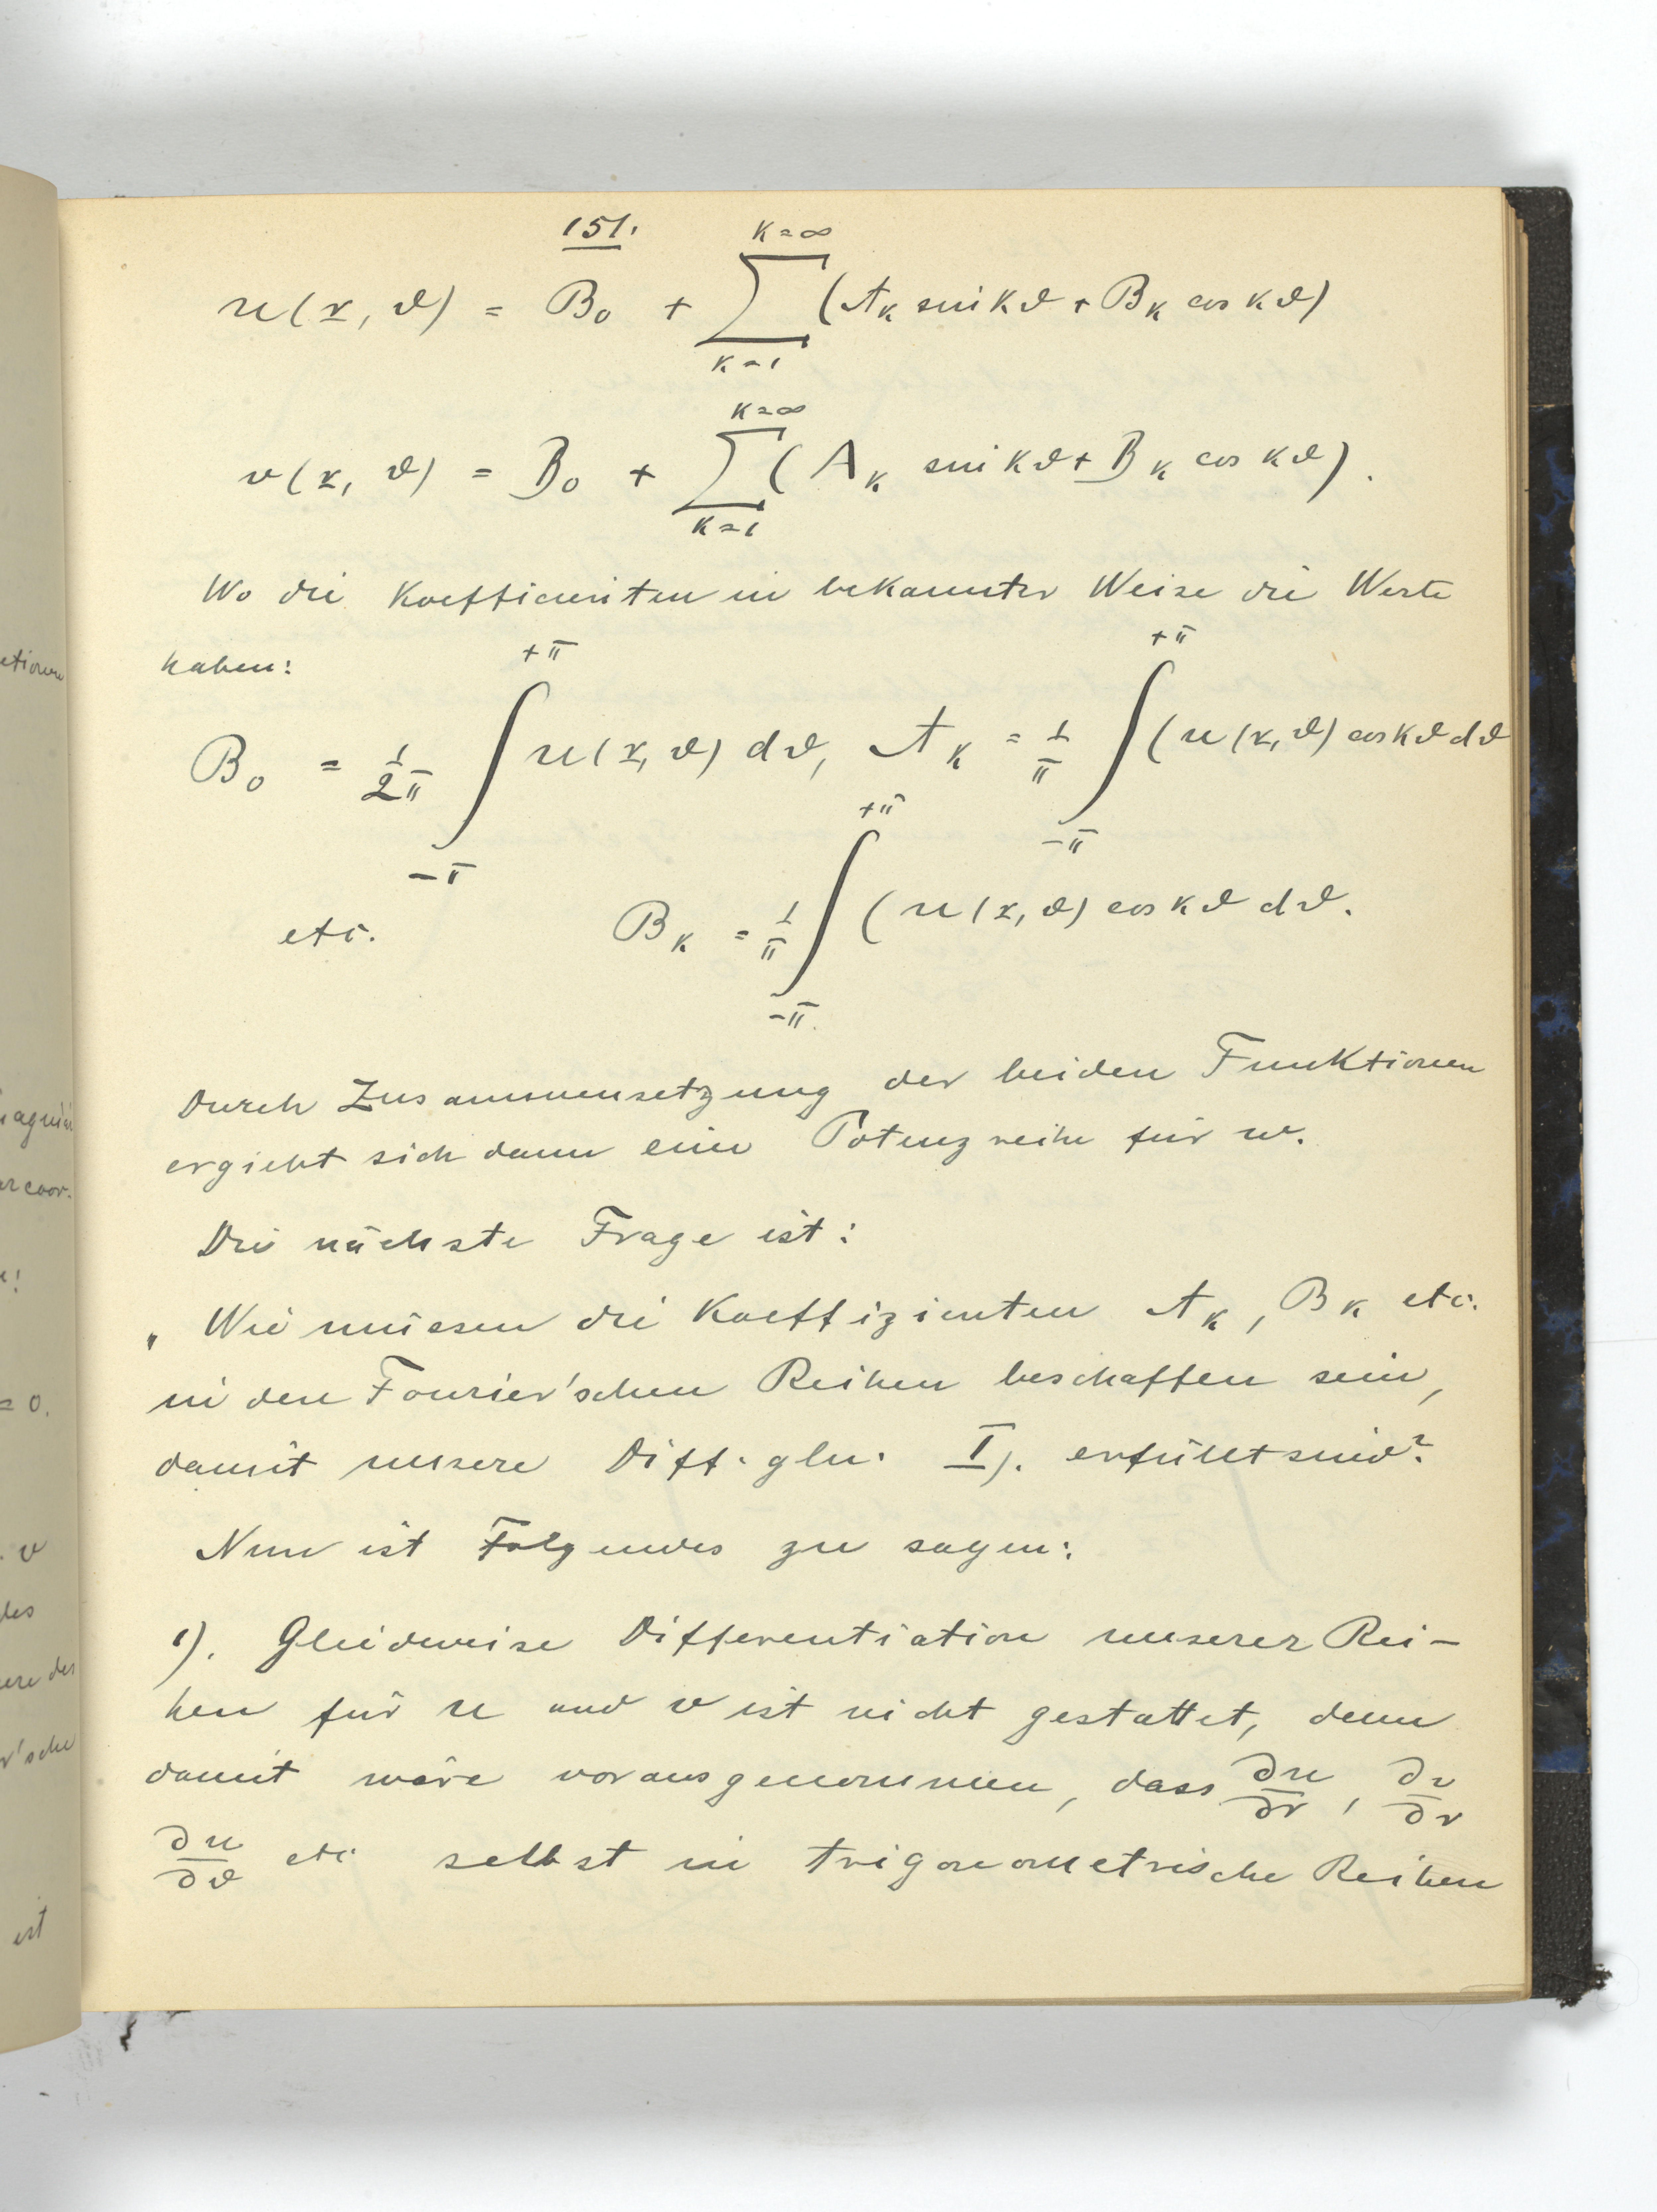 151.
u(r, ϑ) = B₀ + ∑_{k=1}^{k=∞} (A_k sin kϑ + B_k cos kϑ)
v(r, ϑ) = B₀ + ∑_{k=1}^{k=∞} (A_k sin kϑ + B_k cos kϑ).
Wo die Koefficienten in bekannter Weise die Werte
haben:
B₀ = 1/2π ∫_{-π}^{+π} u(r, ϑ) dϑ, A_k = 1/π ∫_{-π}^{+π} (u(r, ϑ) cos kϑ dϑ
etc. B_k = 1/π ∫_{-π}^{+π} (u(r, ϑ) cos kϑ dϑ.
Durch Zusammensetzung der beiden Funktionen
ergiebt sich dann eine Potenzreihe für w.
Die nächste Frage ist:
„Wie müssen die Koeffizienten A_k, B_k etc.
in den Fourier'schen Reihen beschaffen sein,
damit unsere Diff. gln. I). erfüllt sind?
Nun ist Folgendes zu sagen:
1). Gliedweise Differentiation unserer Rei-
hen für u und v ist nicht gestattet, denn
damit wäre vorausgenommen, dass ∂u/∂r, ∂v/∂r
∂u/∂ϑ etc selbst in trigonometrische Reihen
etionen
er coor.
= 0.
v
des
ere der
r'sche
ist